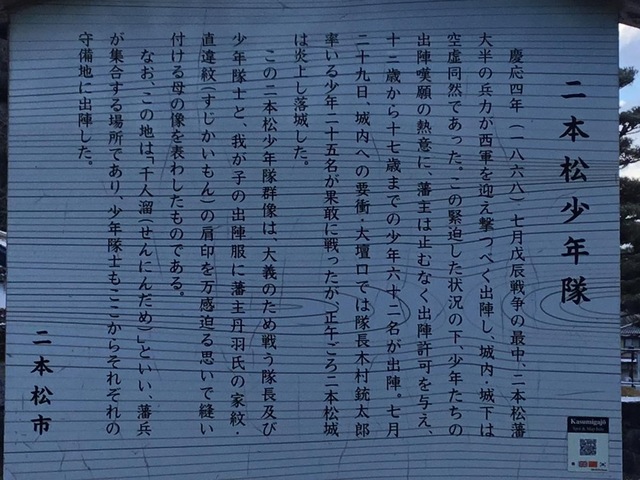 二本松少年隊
慶応四年(一八六八)七月戊辰戦争の最中、二本松藩
大半の兵力が西軍を迎え撃つべく出陣し、城内・城下は
空虚同然であった。この緊迫した状況の下、少年たちの
出陣嘆願の熱意に、藩主は止むなく出陣許可を与え、
十二歳から十七歳までの少年六十二名が出陣。七月
二十九日、城内への要衝・大壇口では隊長木村銃太郎
率いる少年二十五名が果敢に戦ったが、正午ごろ二本松城
は炎上し落城した。
この二本松少年隊群像は、大義のため戦う隊長及び
少年隊士と、我が子の出陣服に藩主丹羽氏の家紋・
直違紋(すじかいもん)の肩印を万感迫る思いで縫い
付ける母の像を表わしたものである。
なお、この地は「千人溜(せんにんだめ)」といい、藩兵
が集合する場所であり、少年隊士もここからそれぞれの
守備地に出陣した。
二本松市
Kasumigajō